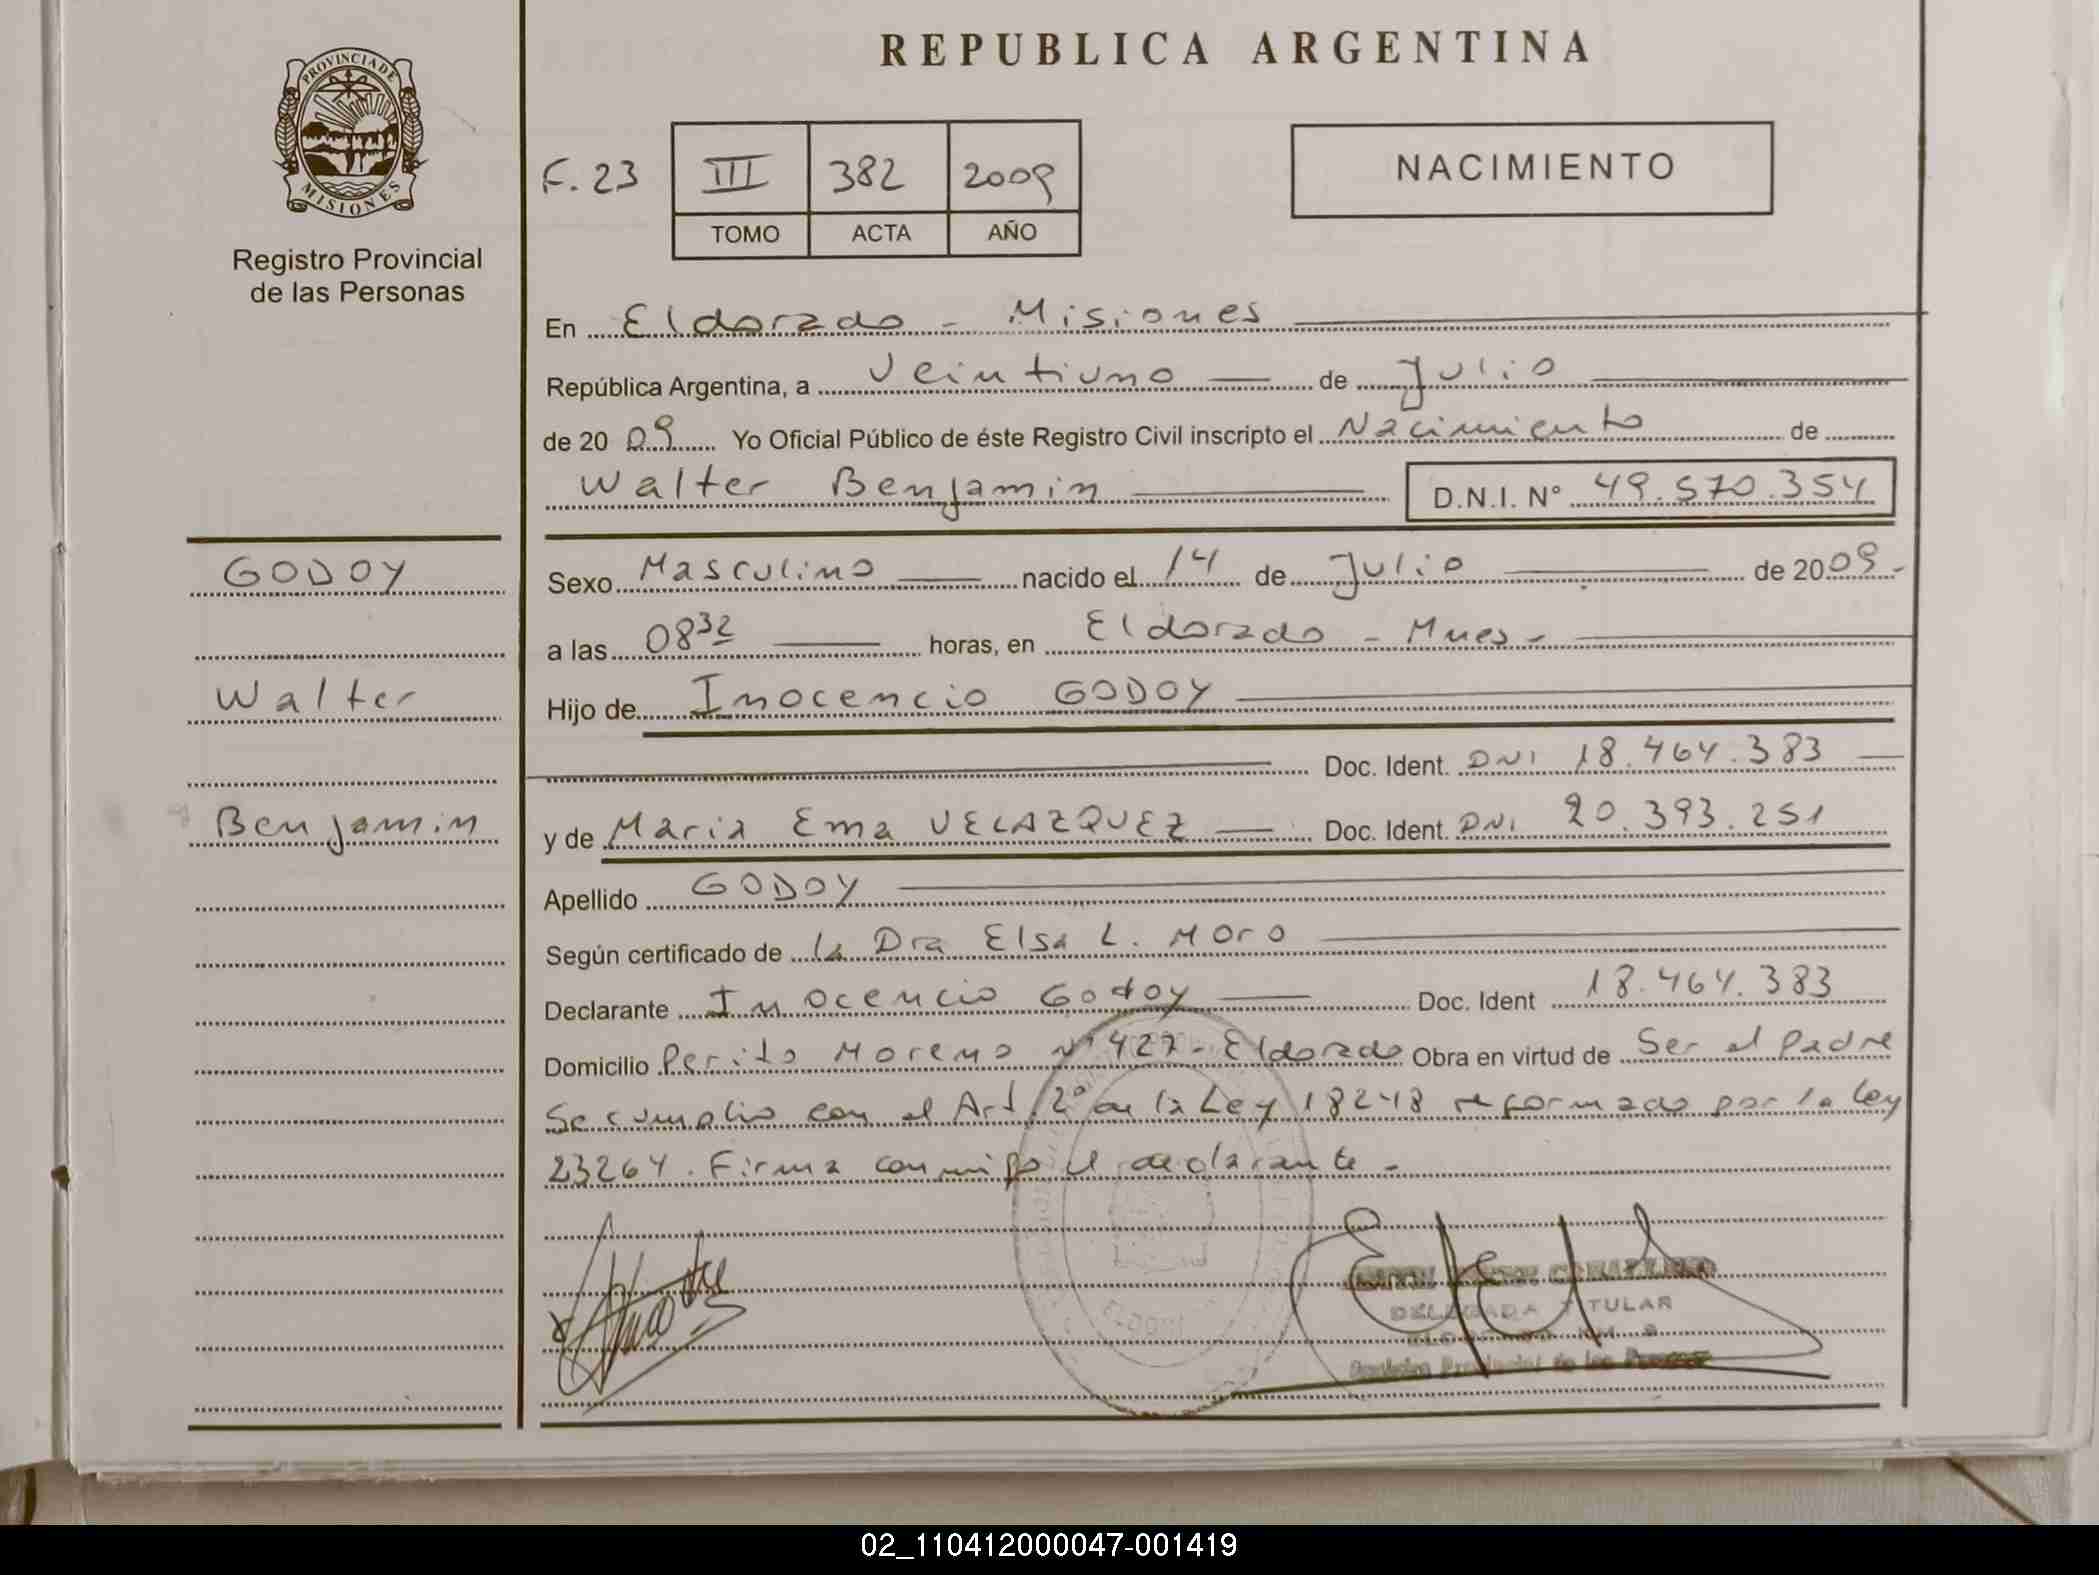 REPUBLICA ARGENTINA
PROVINCIA DE
MISIONES
Registro Provincial
de las Personas
F. 23 III 382 2009
TOMO ACTA AÑO
NACIMIENTO
En Eldorado - Misiones
República Argentina, a Veintiuno de Julio
de 20 09 Yo Oficial Público de éste Registro Civil inscripto el Nacimiento de
Walter Benjamin D.N.I. N° 49.570.354
GODOY
Walter
Benjamin
Sexo Masculino nacido el 14 de Julio de 2009-
a las 08 32 horas, en Eldorado - Mnes-
Hijo de Inocencio GODOY
Doc. Ident. DNI 18.464.383
y de Maria Ema VELAZQUEZ Doc. Ident. DNI 20.393.251
Apellido GODOY
Según certificado de la Dra Elsa L. Moro
Declarante Inocencio Godoy Doc. Ident 18.464.383
Domicilio Perito Moreno N° 427- Eldorado Obra en virtud de Ser el Padre
Se cumplio con el Art. 2° de la Ley 18248 reformado por la Ley
23264. Firma conmigo el declarante-
DELEGADA TITULAR
ELDORADO KM. 9
Registro Provincial de las Personas
02_110412000047-001419